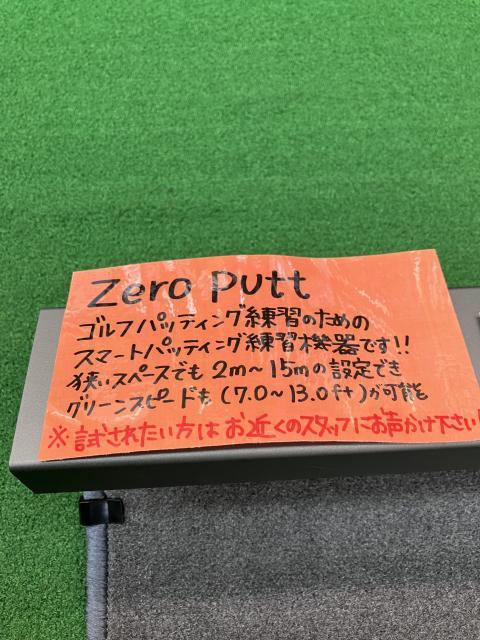 Zero Putt
ゴルフパッティング練習のための
スマートパッティング練習機器です!!
狭いスペースでも 2m～15mの設定でき
グリーンスピードも (7.0～13.0ft)が可能
※試されたい方は お近くのスタッフにお声かけ下さい!